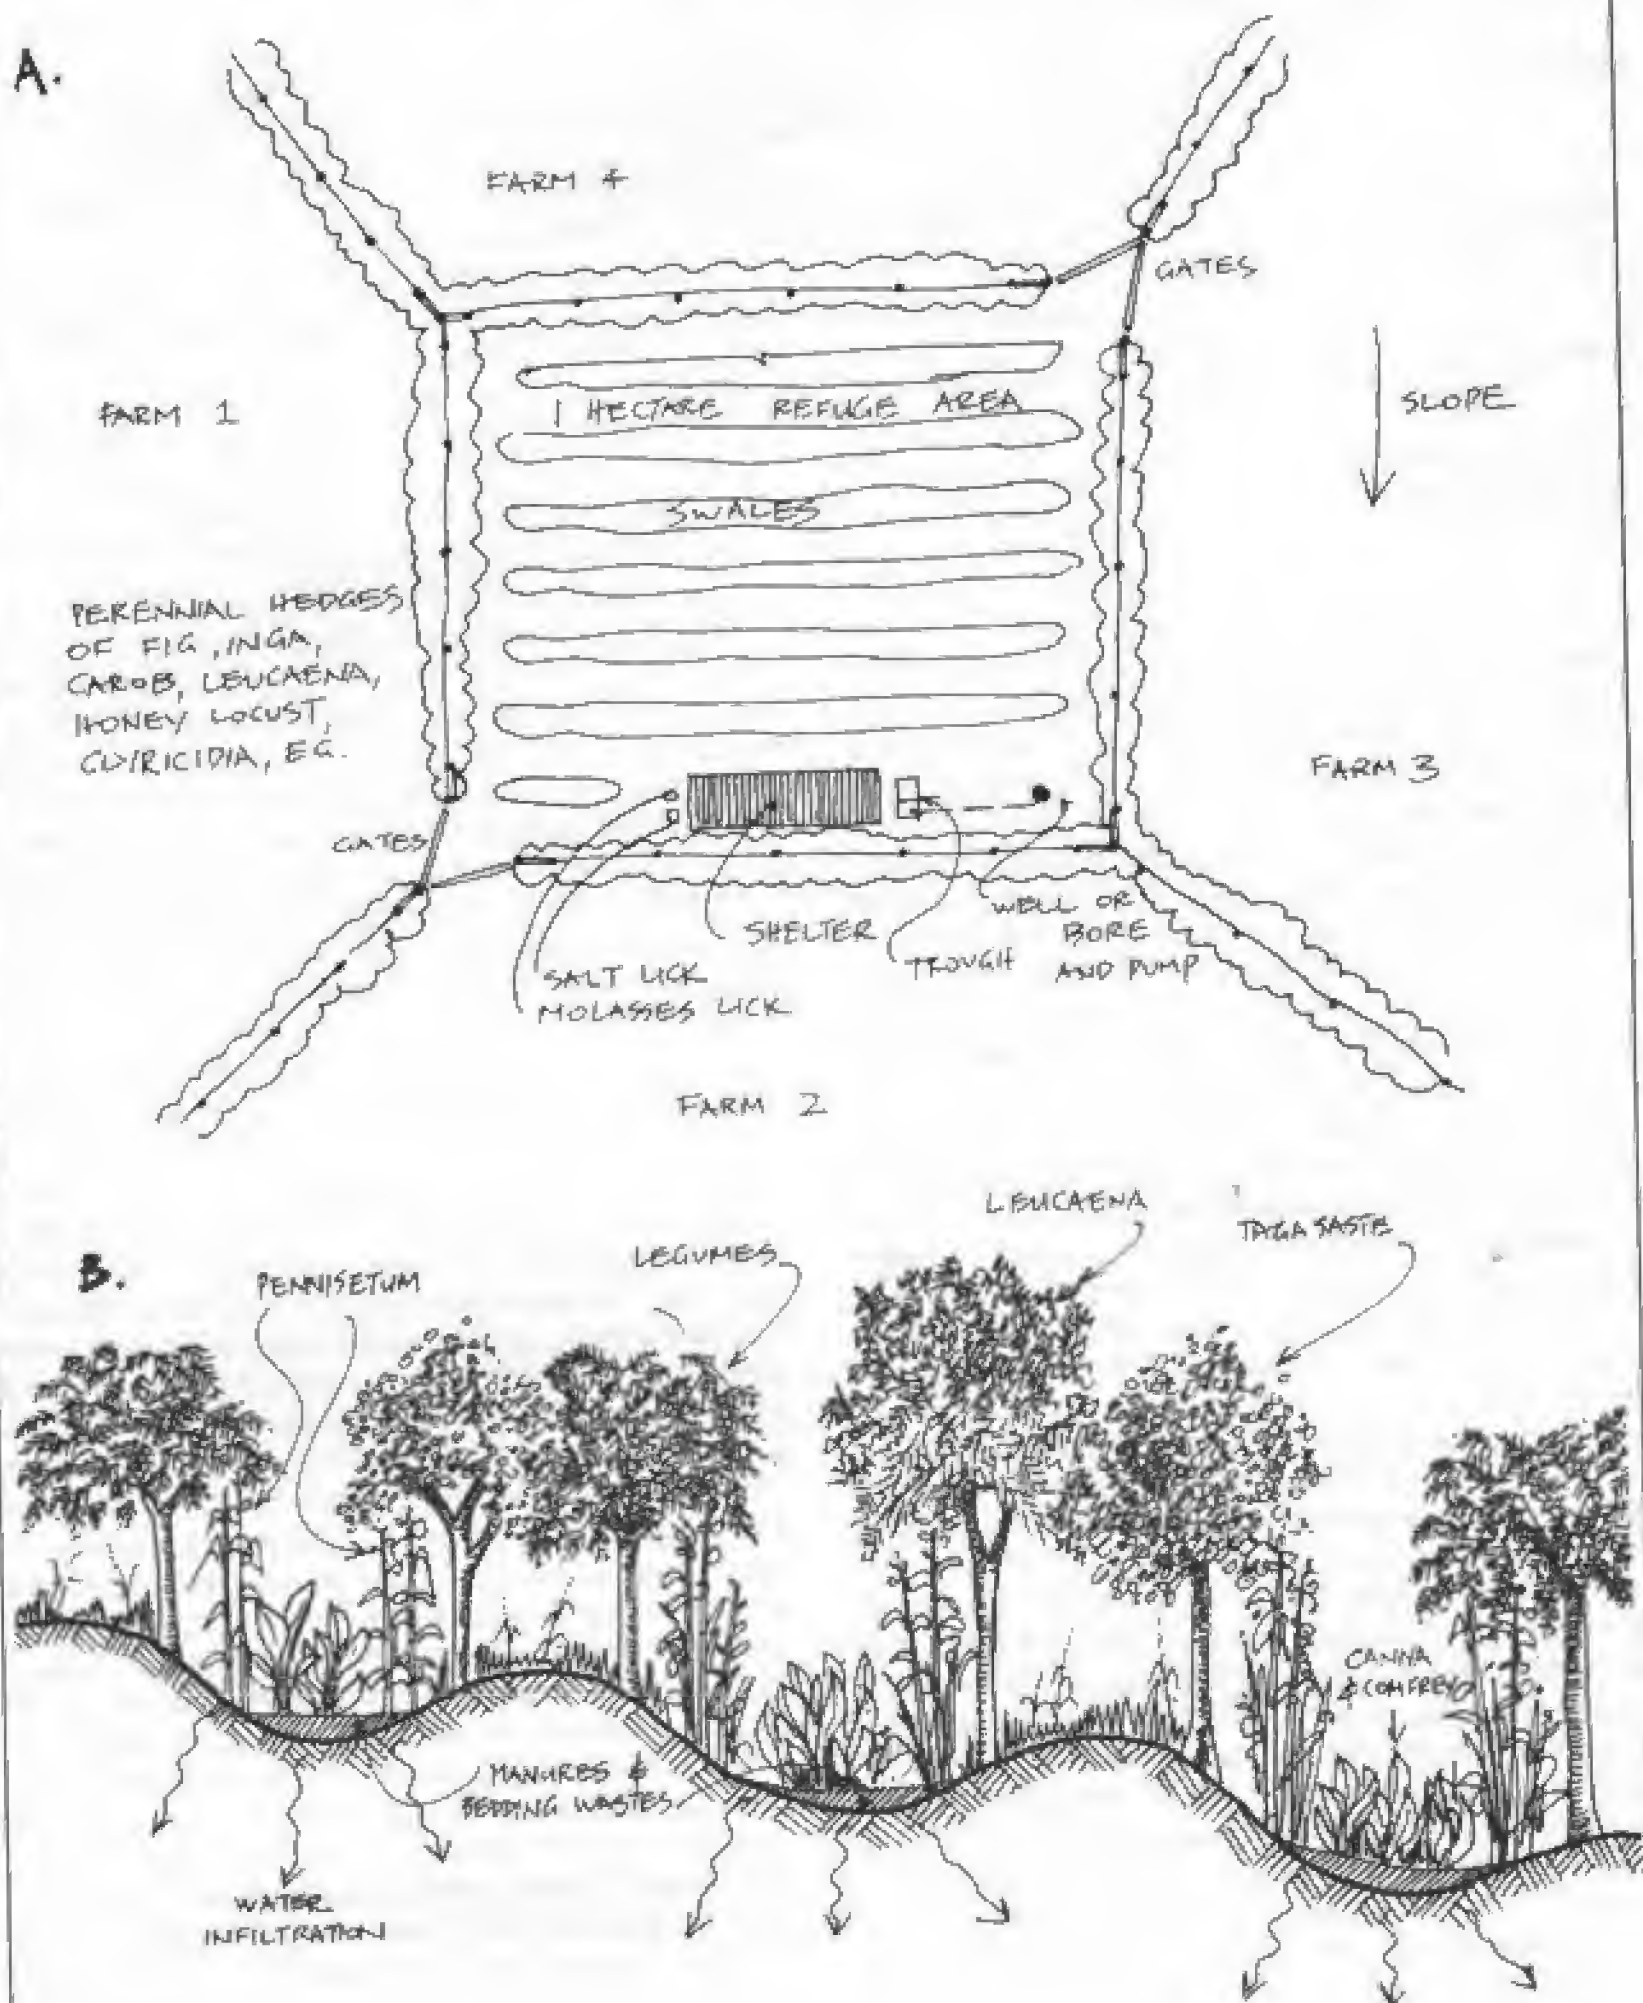 A.
FARM 4
GATES
1 HECTARE REFUGE AREA
SLOPE
FARM 1
SWALES
PERENNIAL HEDGES
OF FIG, INGA,
CAROB, LEUCAENA,
HONEY LOCUST,
GLIRICIDIA, EG.
FARM 3
GATES
SHELTER
WELL OR
BORE
AND PUMP
TROUGH
SALT LICK
MOLASSES LICK
FARM 2
B.
PENNISETUM
LEGUMES
LEUCAENA
TAGASASTE
CANNA
& COMFREY
MANURES &
BEDDING WASTES
WATER
INFILTRATION